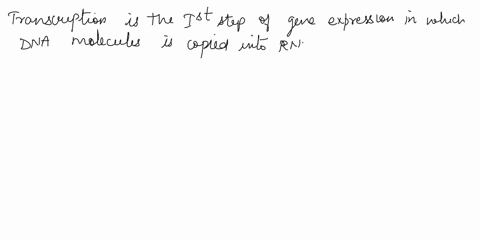 Transcription is the Ist step of gene expression in which
DNA molecules is copied into RN